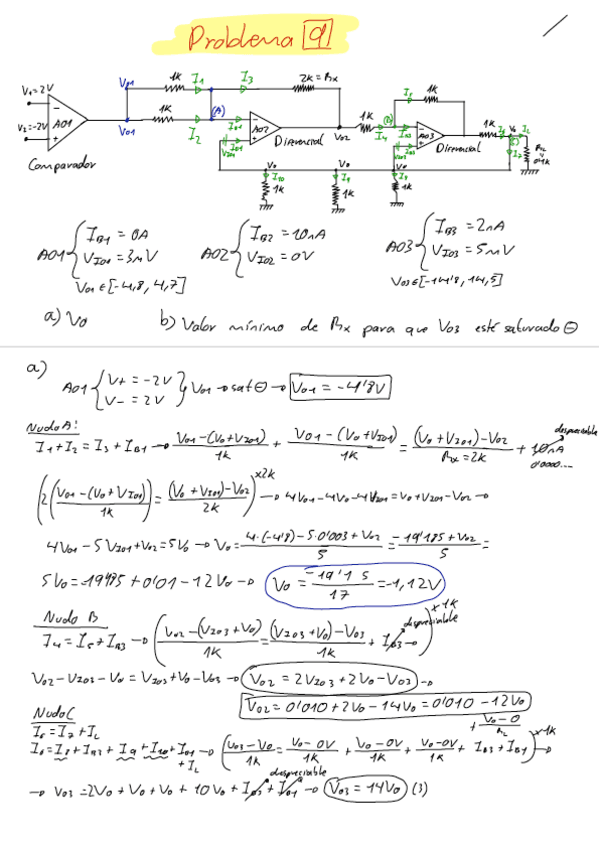 Problema 9
V1=2V
V2=-2V
A01
Comparador
V01
V01
1K
I1
1K
I2
I3
2K = Rx
(A)
A02
Diferencial
V02
1K
I4
(B)
1K
A03
Diferencial
1K
V0
V0
V0
I10
1K
1K
1K
A01 { IB1 = 0A
VIO1 = 3mV
V01 ∈ [-4,8, 4,7]
A02 { IB2 = 10nA
VIO2 = 0V
A03 { IB3 = 2nA
VIO3 = 5mV
V03 ∈ [-14'8, 14,5]
a) V0 b) Valor mínimo de Rx para que V03 esté saturado ⊖
a)
A01 { V+ = -2V
V- = 2V } V01 → sat ⊖ → V01 = -4'8V
Nudo A:
I1 + I2 = I3 + IB1 → (V01-(V0+VIO1))/1K + (V01-(V0+VIO1))/1K = ((V0+VIO1)-V02)/(Rx=2K) + 10nA despreciable
(2(V01-(V0+VIO1))/1K = ((V0+VIO1)-V02)/2K)×2K → 4V01-4V0-4VIO1 = V0+VIO1-V02 →
4V01-5VIO1+V02=5V0 → V0 = (4·(-4'8)-5·0'003+V02)/5 = (-19'185+V02)/5 =
5V0=-19'185+0'01-12V0 → V0 = -19'15/17 = -1,12V
Nudo B
I4 = I5 + IB3 → ((V02-(VIO3+V0))/1K = ((VIO3+V0)-V03)/1K + IB3 →)×1K despreciable
V02-VIO3-V0 = VIO3+V0-V03 → V02 = 2VIO3+2V0-V03 →
V02 = 0'010+2V0-14V0 = 0'010-12V0
Nudo C
I6 = I7 + IL
I6 = I8 + IB3 + I9 + I10 + IB1 + IL → ((V03-V0)/1K = (V0-0V)/1K + (V0-0V)/1K + (V0-0V)/1K + IB3 + IB1 + (V0-0)/RL)×1K →
→ V03 = 2V0 + V0 + V0 + 10V0 + IB3 + IB1 despreciable → V03 = 14V0 (3)